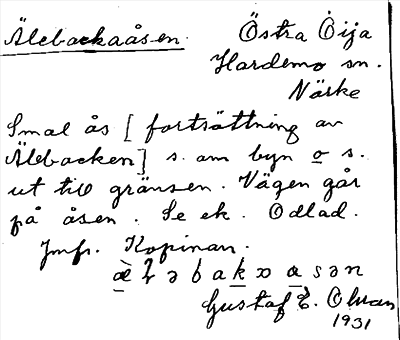 Älebackaåsen.
Östra Öija
Hardemo sn.
Närke
Smal ås [fortsättning av
Älebacken] s. om byn o s.
ut till gränsen. Vägen går
på åsen. Se ek. Odlad.
Jmfr. Kopinan.
Gustaf E.
1931